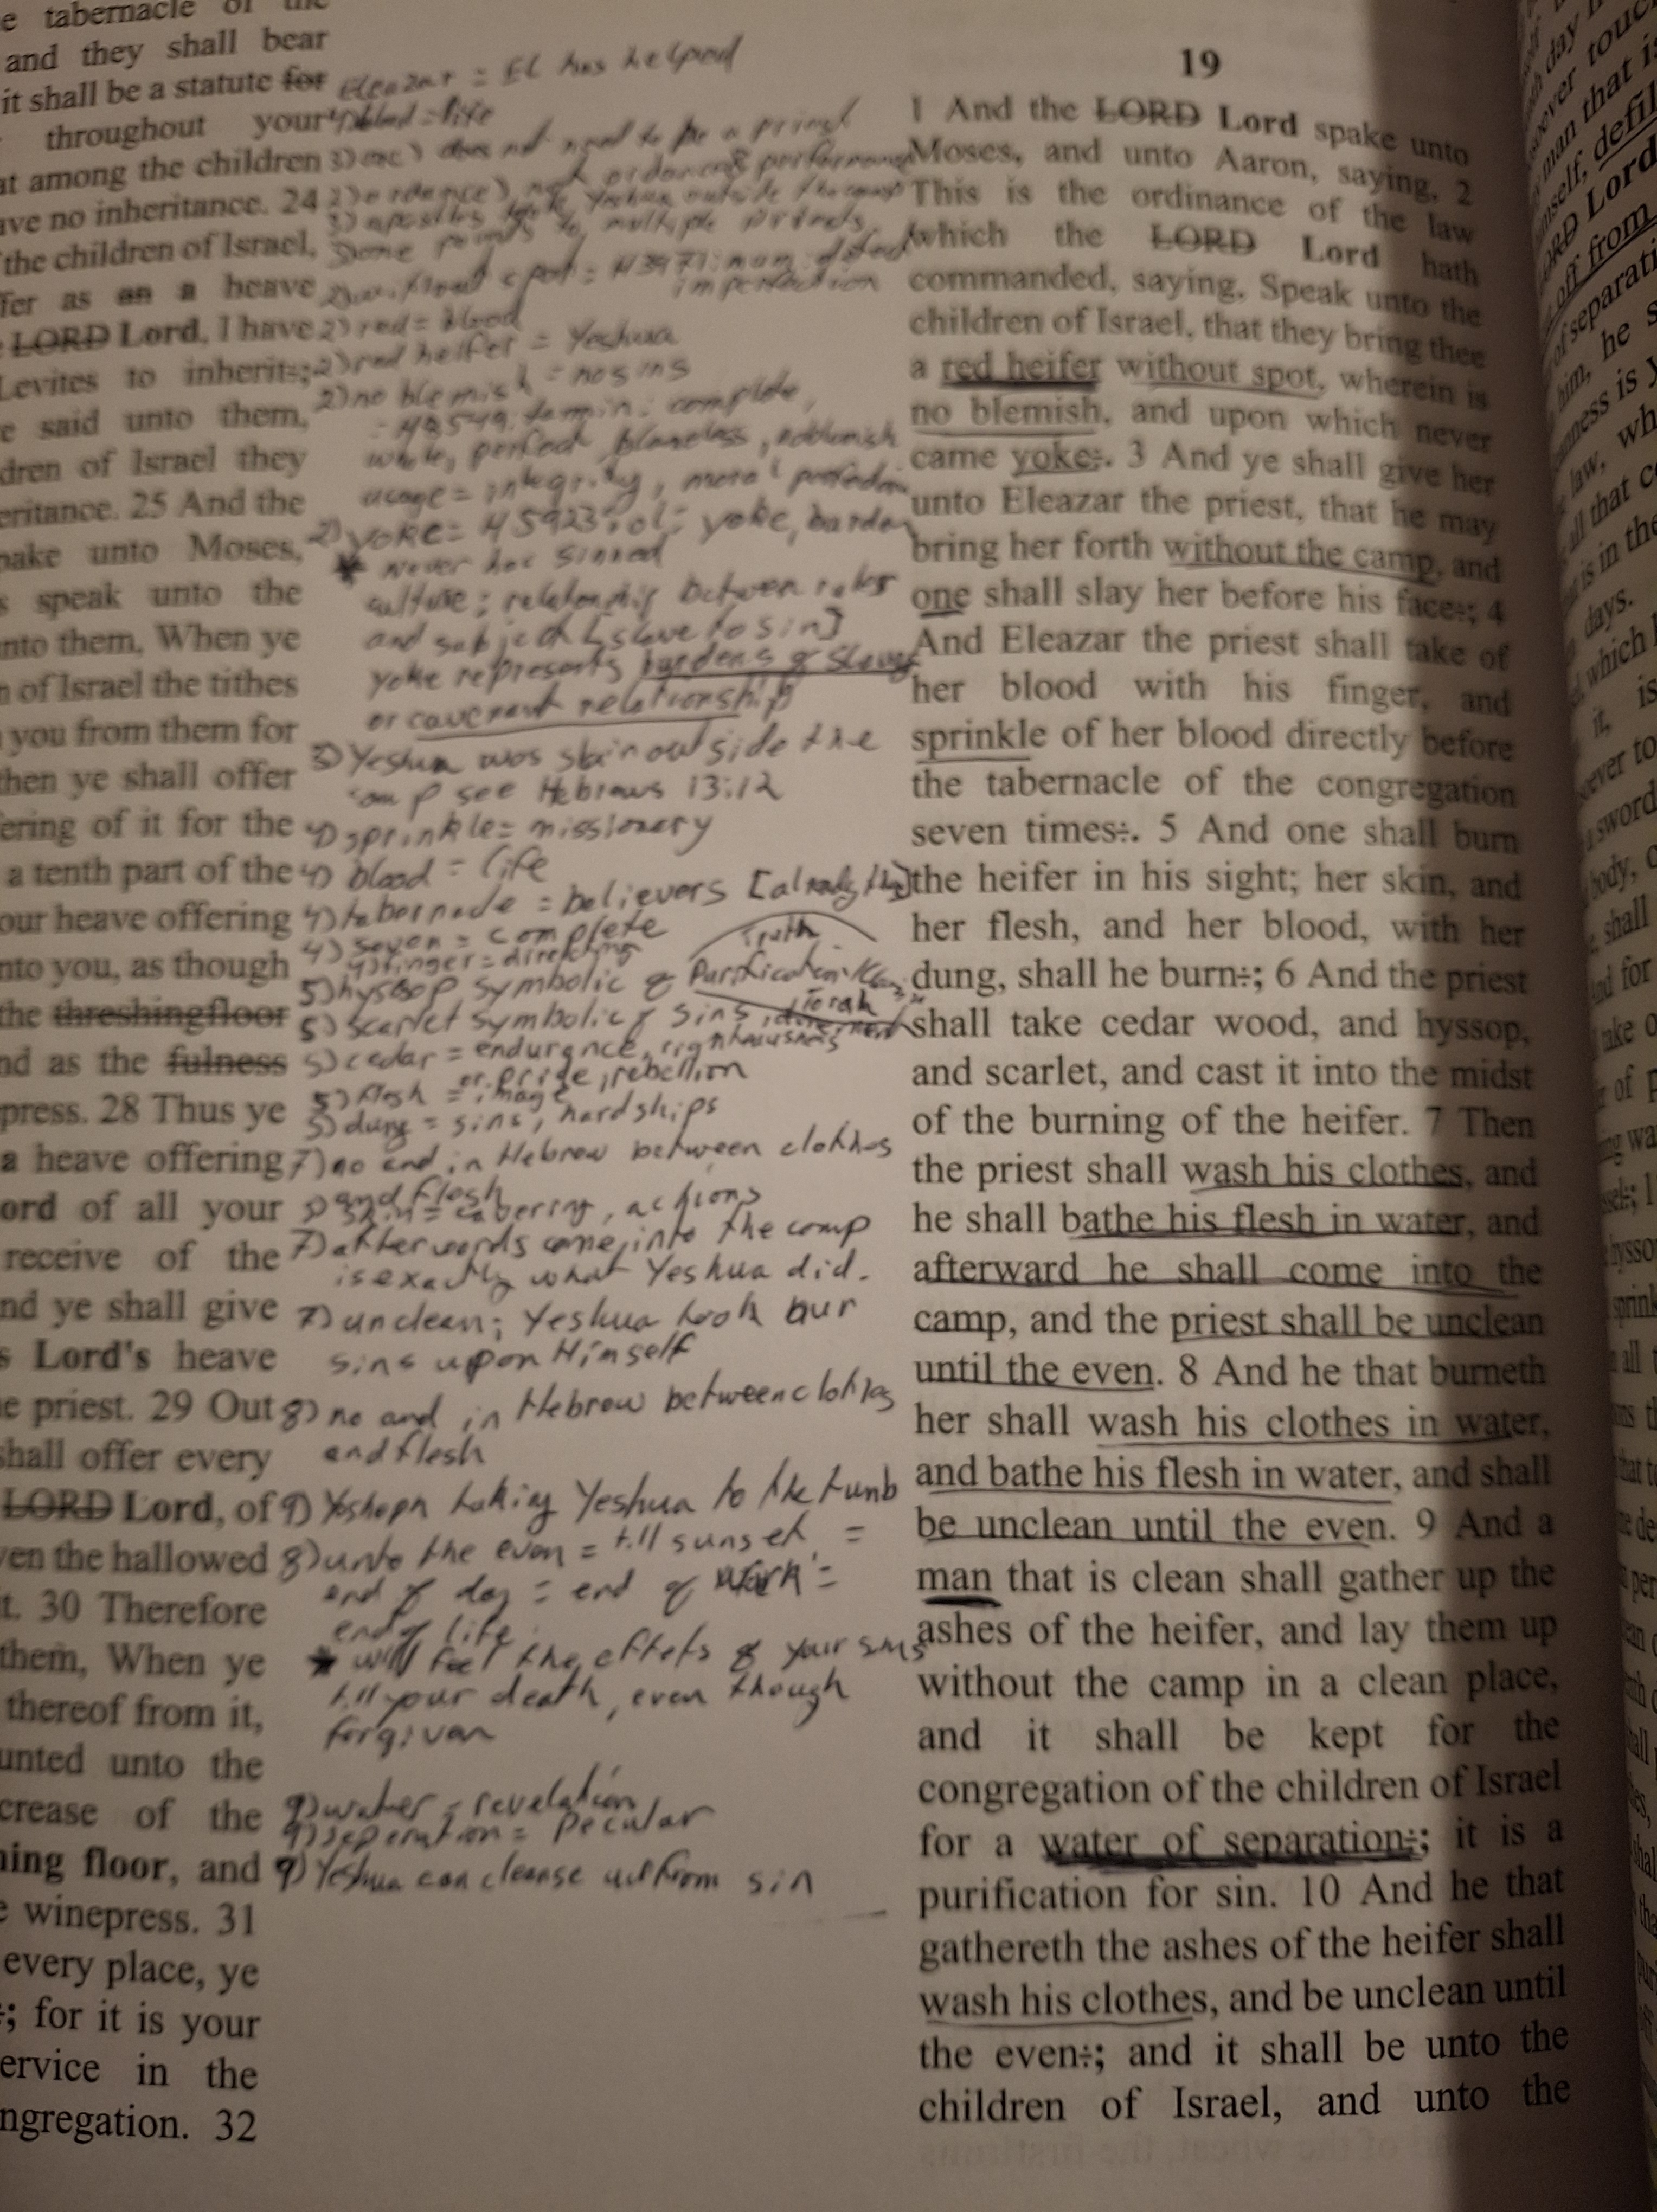 e tabernacle of the
and they shall bear
it shall be a statute for
throughout your
at among the children
ave no inheritance. 24
the children of Israel,
fer as an a heave
LORD Lord, I have
Levites to inherit:;
e said unto them,
dren of Israel they
eritance. 25 And the
pake unto Moses,
s speak unto the
nto them, When ye
n of Israel the tithes
you from them for
then ye shall offer
ering of it for the
a tenth part of the
our heave offering
nto you, as though
the threshingfloor
nd as the fulness
press. 28 Thus ye
a heave offering
ord of all your
receive of the
nd ye shall give
s Lord's heave
e priest. 29 Out
shall offer every
LORD Lord, of
ven the hallowed
t. 30 Therefore
them, When ye
thereof from it,
unted unto the
crease of the
ning floor, and
e winepress. 31
every place, ye
:; for it is your
ervice in the
ngregation. 32
Eleazar = El has helped
4) blood = life
3) one) does not need to be a priest
2) ordenance) not ordinances performance
3) apostles took Yeshua outside the camp
Some points to multiple priests
2) without spot = H3971: mum: defect
imperfection
2) red = blood
2) red heifer = Yeshua
2) no blemish = no sins
= H8549: tamin: complete,
whole, perfect, blameless, noblemish
usage = integrity, moral perfection
2) yoke = H5923: ol: yoke, burden
* never has sinned
culture: relationship between ruler
and subject [slave to sin]
yoke represents burdens of slavery
or covenant relationship
3) Yeshua was slain outside the
camp see Hebrews 13:12
4) sprinkle = missionary
4) blood = life
4) tabernacle = believers [already His]
4) seven = complete
4) finger = directing
Truth
5) hyssop symbolic of Purification
Torah
5) scarlet symbolic of sins,
5) cedar = endurance, righteousness
or pride, rebellion
5) flesh = image
5) dung = sins, hardships
7) no and in Hebrew between clothes
and flesh
5) skin = covering, actions
7) afterwords come into the camp
is exactly what Yeshua did.
7) unclean; Yeshua took our
sins upon Himself
8) no and in Hebrew between clothes
and flesh
9) Yosheph taking Yeshua to the tumb
8) unto the even = till sunset =
end of day = end of work =
end of life.
* will feel the effets of your sins
till your death, even though
forgiven
9) water = revelation
9) seperation = Pecular
9) Yeshua can cleanse us from sin
19
1 And the LORD Lord spake unto
Moses, and unto Aaron, saying, 2
This is the ordinance of the law
which the LORD Lord hath
commanded, saying, Speak unto the
children of Israel, that they bring thee
a red heifer without spot, wherein is
no blemish, and upon which never
came yoke:. 3 And ye shall give her
unto Eleazar the priest, that he may
bring her forth without the camp, and
one shall slay her before his face:; 4
And Eleazar the priest shall take of
her blood with his finger, and
sprinkle of her blood directly before
the tabernacle of the congregation
seven times:. 5 And one shall burn
the heifer in his sight; her skin, and
her flesh, and her blood, with her
dung, shall he burn:; 6 And the priest
shall take cedar wood, and hyssop,
and scarlet, and cast it into the midst
of the burning of the heifer. 7 Then
the priest shall wash his clothes, and
he shall bathe his flesh in water, and
afterward he shall come into the
camp, and the priest shall be unclean
until the even. 8 And he that burneth
her shall wash his clothes in water,
and bathe his flesh in water, and shall
be unclean until the even. 9 And a
man that is clean shall gather up the
ashes of the heifer, and lay them up
without the camp in a clean place,
and it shall be kept for the
congregation of the children of Israel
for a water of separation:; it is a
purification for sin. 10 And he that
gathereth the ashes of the heifer shall
wash his clothes, and be unclean until
the even:; and it shall be unto the
children of Israel, and unto the